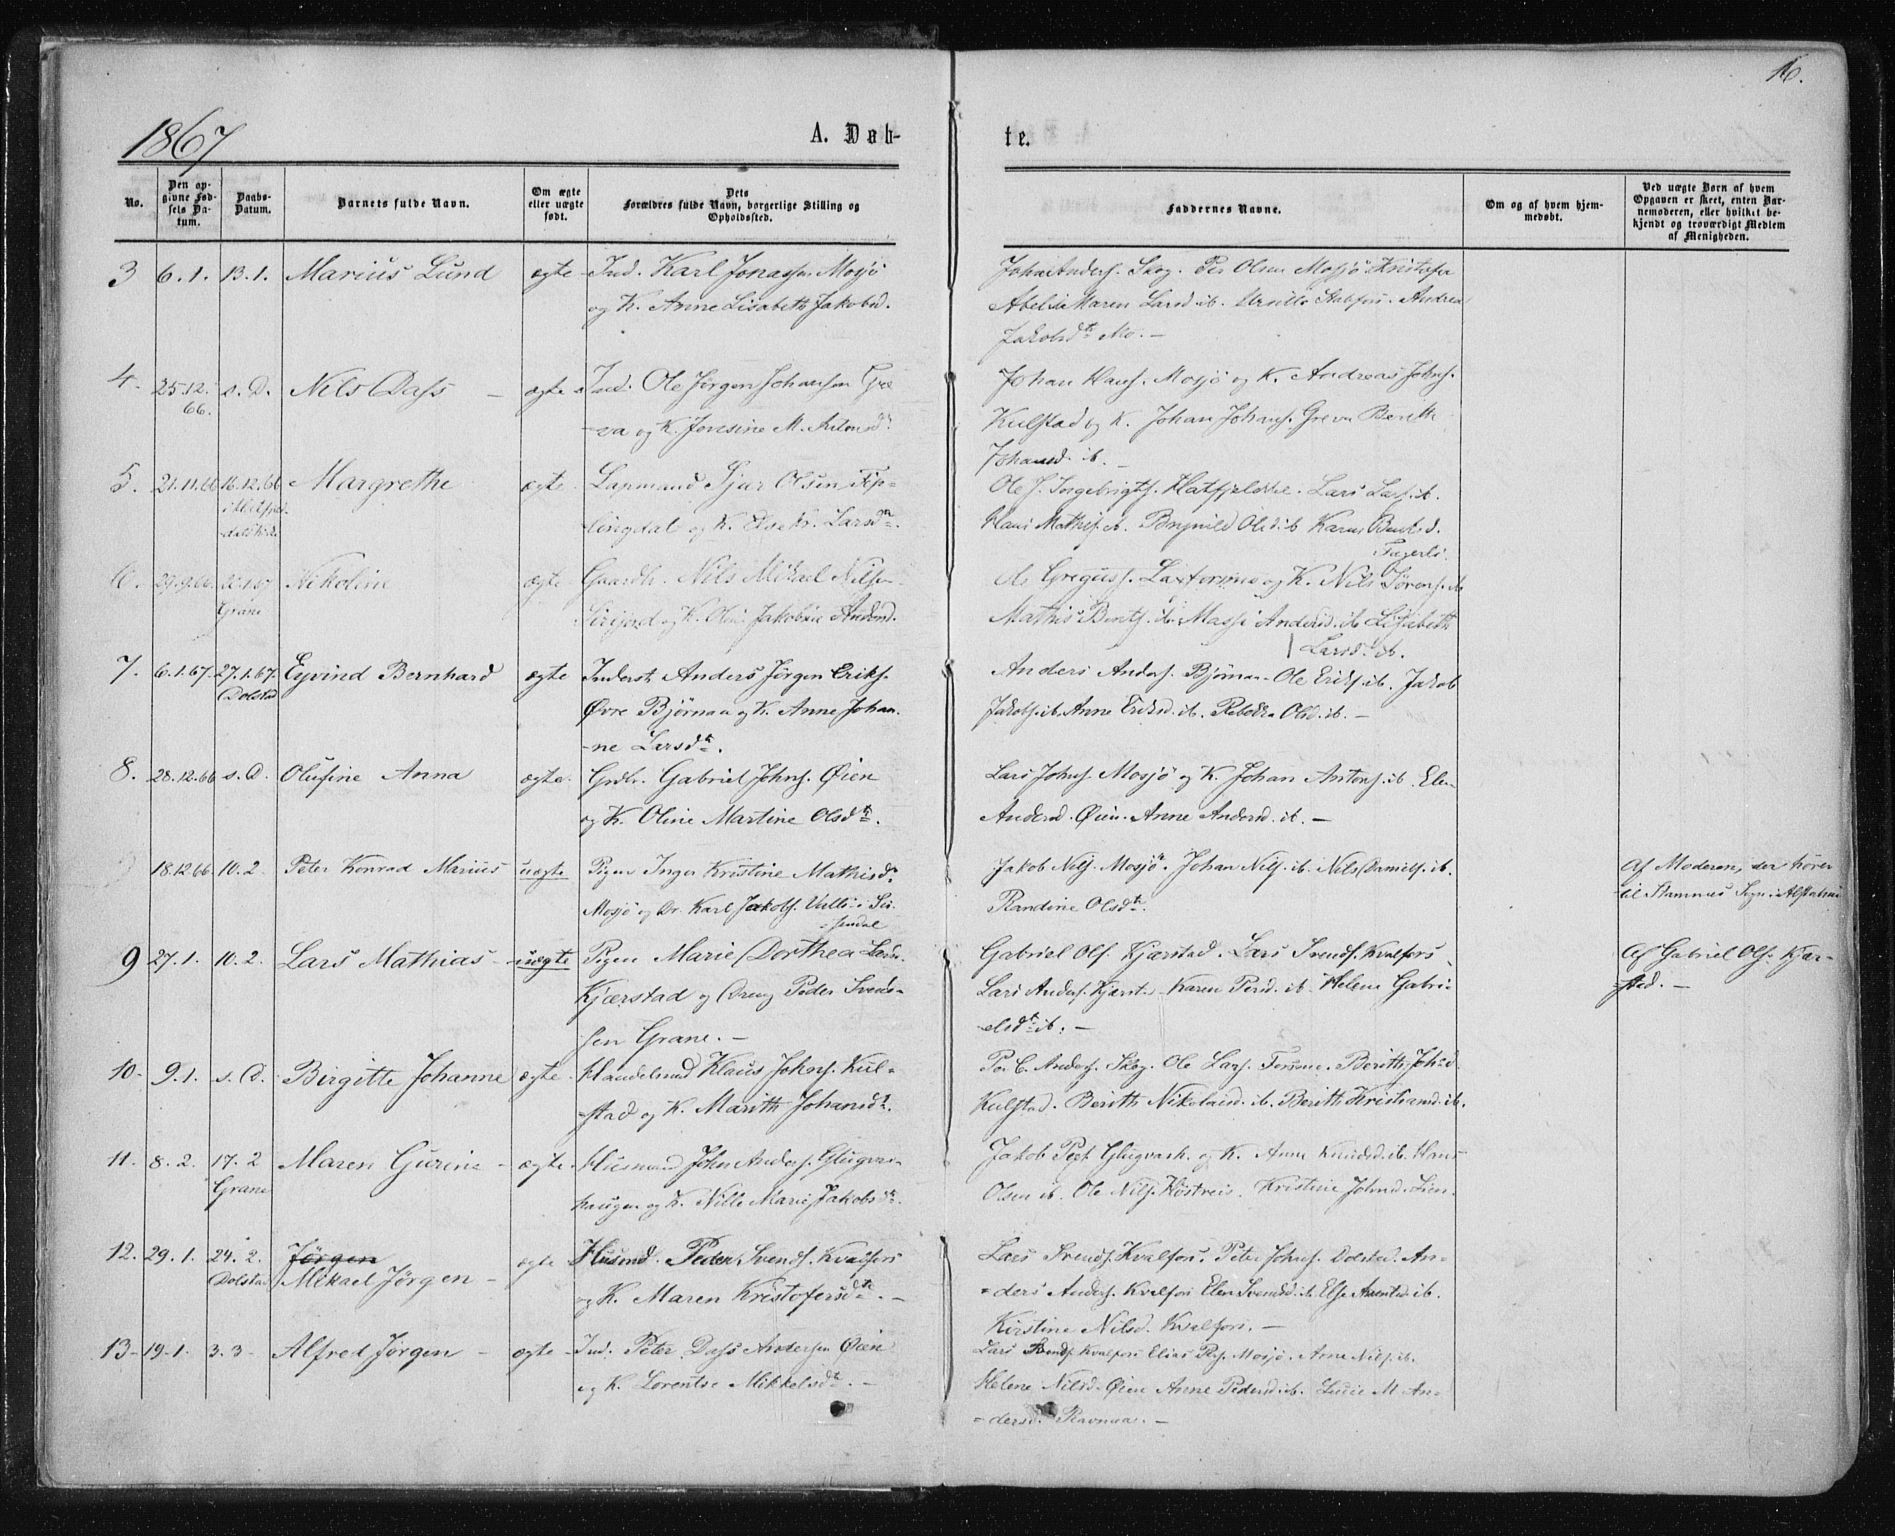 16.
1867
A. Døb-
te.
No.
Den op-
givne Fød-
sels Da-
tum.
Daabs-
Datum.
Barnets fulde Navn.
Om ægte
eller uægte
født.
Dets
Forældres fulde Navn, borgerlige Stilling og
Opholdssted.
Faddernes Navne.
Om og af hvem hjem-
medøbt.
Ved uægte Børn af hvem
Opgaven er skeet, enten Bar-
nemoderen, eller hvilket be-
kjendt og troværdigt Medlem
af Menigheden.
3 6.1. 13.1. Marius Lund ægte Ind. Karl Jonassen Mosjö
og K. Anne Lisabeth Jakobsd.
Skog. Per Olsen Mosjö Kristofer
Maren Larsd. ib. Andrea
Jakobsdtr Mo. —
4. 25.12. s. D. Nils Dass — ægte Ind. Ole Jörgen Johansen Gre
66.
va og K. M. Antonsdtr.
Johan Hans. Mosjö og K. Andreas Johns.
Kulstad og K. Johan Johans. Greva Berith
Johansd. ib. —
5. 21.11.66 16.12.66 Margrethe ægte Lapmand Olsen Fip-
lingdal og K. Else Kr. Larsdtr.
Ole J. Ingebrigts. Hatfjeldde. Lars Lars. ib.
Hans Mathis. ib. Brynild Ols. ib. Karen Bentsd.
Fagerli.
6. 29.9.66 Nikoline ægte Gaardb. Nils Mikael Nilsen
Grane
og K. Jakobine Andersd.
Greguss. og K. Nils Sørens. ib
Mathis Bents. ib. Massi Andersd. ib Lisabeth
Larsd. ib.
7. 6.1.67. 27.1.67. Eyvind Bernhard ægte Inderst. Anders Jørgen Eriks.
Dolstad
Øvre Björnaa og K. Anne Johan-
-ne Larsdtr.
Anders Anders. Björnaa. Ole Eriks. ib. Jakob
Jakobs. ib. Anne Eriksd. ib. Rebekka Olsd. ib. —
8. 28.12.66 s. D. Olufine Anna ægte. Grdbr. Gabriel Johns. Øien
og K. Oline Martine Olsdtr.
Lars Johns. Mosjö og K. Johan Antons. ib. Elen
Andersd. Øien. Anne Andersd. ib. —
18.12.66 10.2. Peter Konrad Marius uægte Pigen Inger Kristine Mathisdtr.
Mosjö og Dr. Karl Jakobs.
Jakob Nils. Mosjö. Johan Nils. ib. Nils Daniels. ib.
Randine Olsdtr.
Af Moderen, der hører
til Stamnes Sogn i Alstahaug
9 27.1. 10.2. Lars Mathias — uægte Pigen Marie Dorthea Larsd.
Kjærstad og Dreng Peder Svend-
sen Grane. —
Gabriel Ols. Kjærstad. Lars Svends. Kvalfors
Lars Anders. Kjærst. Karen Persd. ib. Helene Gabri-
elsdtr ib. —
Af Gabriel Ols. Kjær-
stad. —
10 9.1. s. D. Birgitte Johanne ægte Handelsmd Klaus Johns. Kul-
stad og K. Marith Johansdtr.
Per C. Anders. Skog. Ole Lars. Berith Johsd.
Kulstad. Berith Nikolaisd. ib. Berith Kristiansd. ib.
11. 8.2. 17.2 Maren Gurine — ægte. Husmand John Anders. Glugvas-
Grane
haugen og K. Nille Marie Jakobsdtr.
Jakob Pet. Glugvash. og K. Anne Knudsd. ib. Hans
Olsen ib. Ole Nils. Kristine Johnsd. Lien.
12. 29.1. 24.2. Jörgen
Dolstad Mikael Jörgen — ægte Husmd. Peder Svends. Kvalfors
og K. Maren Kristofersdtr. —
Lars Svends. Kvalfors. Peter Johns. Dolstad. An-
ders Anders. Kvalfors Elen Svendsd. ib. Else Arentsd. ib.
Kirstine Nilsd. Kvalfors. —
13 19.1. 3.3 Alfred Jörgen — ægte Ind. Peter Dass Andersen Øien
og K. Lorentse Mikkelsdtr. —
Lars Svends. Kvalfors Elias Mosjö. Arne Nils. ib.
Helene Nilsd. Øien Anne Pedersd. ib. Lucie M. An-
dersd. Ravnaa. —